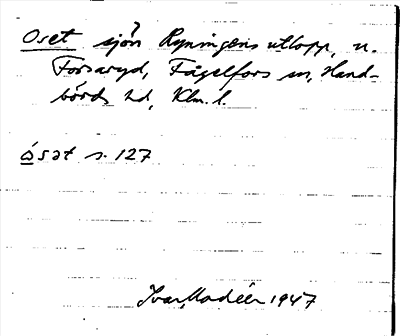 Oset sjön Ryningens utlopp, n.
Forsaryd, Fågelfors sn, Hand-
börds hd, Klm. l.
ósət s. 127
Ivar Modéer 1947